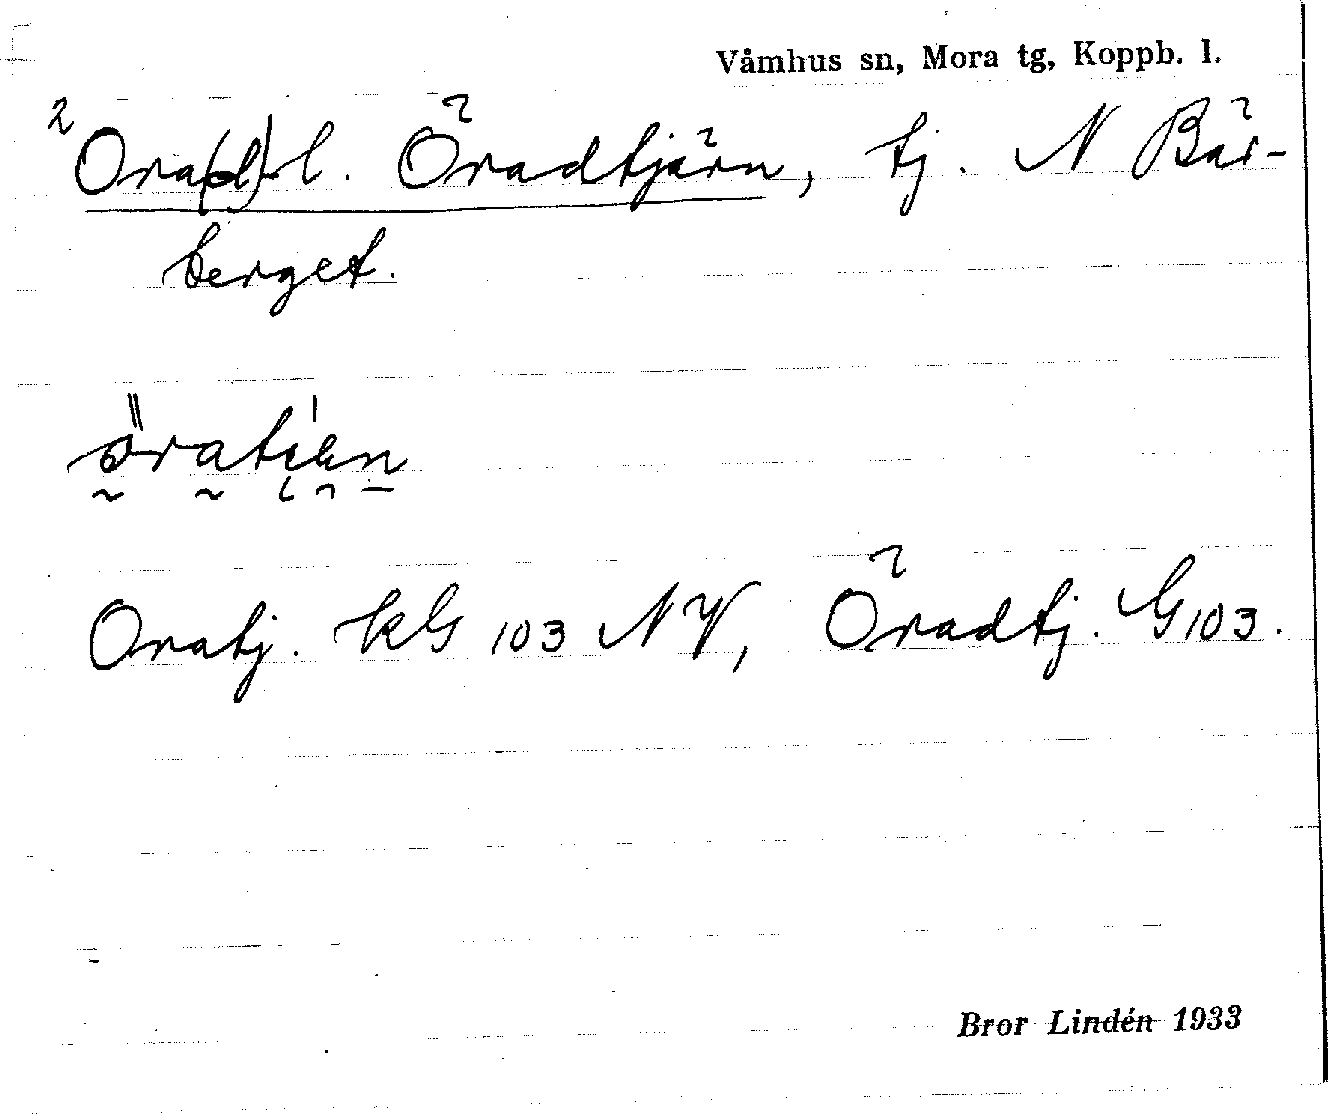 Våmhus sn, Mora tg, Koppb. l.
2 Ora(d)- l. Öradtjärn, tj. N Bär-
berget.
öratien
Oratj. kG 103 NV, Öradtj. G 103.
Bror Lindén 1933